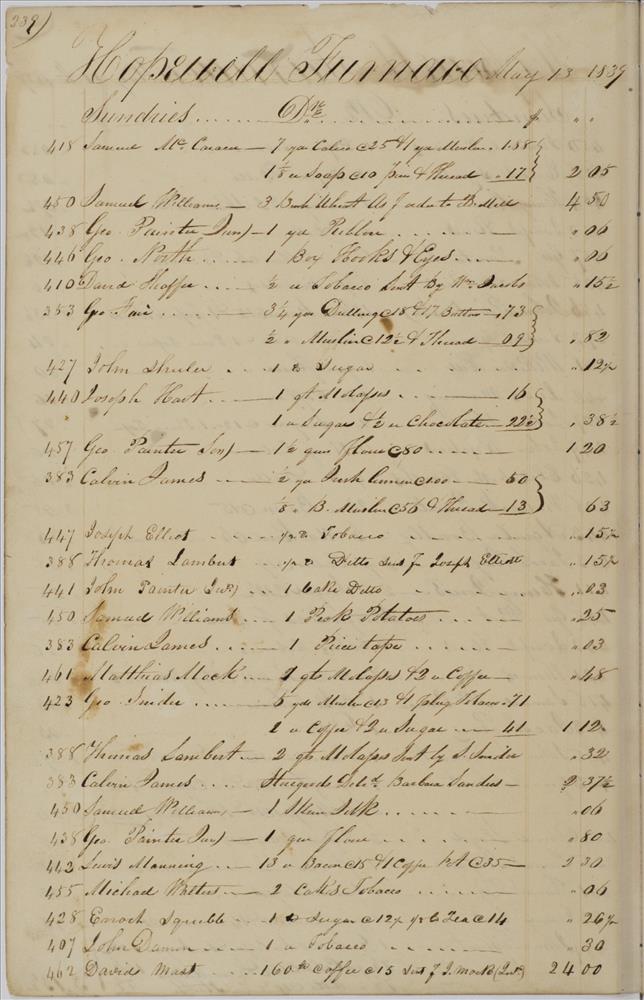 239)
Hopewell Furnace May 13 1839
Sundries ...... Drs ...... $ " "
418 Samuel Mc — 7 yds Calico @ 25 & 1 yd Muslin . 1.88
1 1/2 " Soap @ 10 pins & Thread . 17 2 05
450 Samuel Williams — 3 Bush Wheat 4 50
438 Geo. Painter Jun) — 1 yd Ribbon .... " 06
446 Geo. North .... 1 Box Hooks & Eyes .... " 06
410 David Hoffer .... 1/2 " Tobacco Sent By Wm " 15 1/2
383 Geo Fair .... 3 1/4 yds Drilling @ 18 & 17 Buttons . 73
1/2 " Muslin @ 12 1/2 & Thread — 09 " 82
427 John Shuler ... 1 lb Sugar .... " 12 1/2
440 Joseph Hart .. — 1 qt Molasses ..... 16
1 " Sugar & 1/2 " Chocolate — 22 1/2 " 38 1/2
457 Geo. Painter Sen) — 1 1/2 qrs flour @ 80 .... 1 20
383 Calvin James .... — 1/2 yd Irish linnen @ 100 .... 50
B. Muslin @ 56 & Thread — 13 63
447 Joseph Elliot .... 1/2 lb Tobacco .... " 15 1/2
388 Thomas Lambert .. 1/2 lb Ditto Sent Joseph Elliott " 15 1/2
441 John Painter .. 1 Cake Ditto .... " 03
450 Samuel Williams .. — 1 Peck Potatoes .... " 25
383 Calvin James .... — 1 Piece tape .... " 03
461 Matthias Mock .. — 2 qts Molasses & 2 " Coffee — " 48
423 Geo. Snider .. — 5 yds Muslin @ 13 & 1 plug Tobacco . 71
2 " Coffee & 2 " Sugar .. — 41 1 12
388 Thomas Lambert — 2 qts Molasses Sent by S. Snider " 32
383 Calvin James .... Barbara Sanders — 2 37 1/2
450 Samuel Williams — 1 Skein Silk .... " 06
438 Geo. Painter Jun) — 1 qr flour .... " 80
442 Lewis Manning .. — 13 " Bacon @ 15 & 1 Coffee @ 35 — 2 30
455 Michael .... — 2 Cakes Tobacco .... " 06
428 Enoch Squibb .. — 1 lb Sugar @ 12 1/2 Tea @ 14 " 26 1/2
407 John .... 1 " Tobacco .... " 30
462 David Mast .... 160 lb Coffee @ 15 Sent J. Mock 24 00